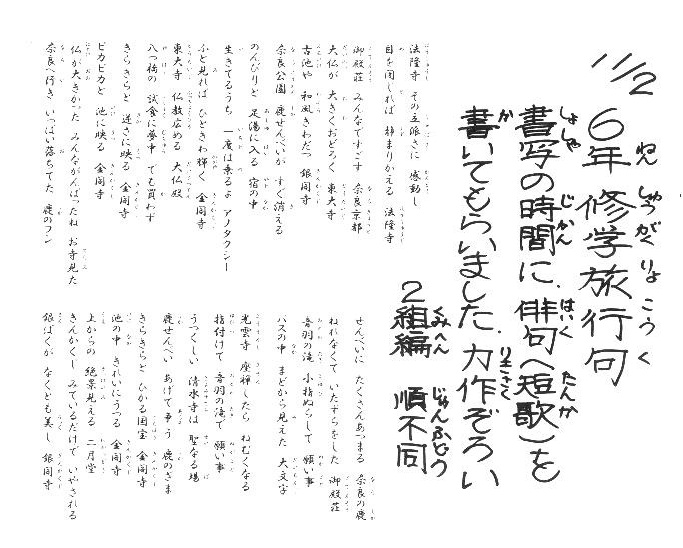 11/2
6年 修学旅行句
書写の時間に、俳句(短歌)を
書いてもらいました。力作ぞろい
2組編 順不同
法隆寺 その立派さに 感動し
目を閉じれば 静まりかえる 法隆寺
御殿荘 みんなですごす 奈良京都
大仏が 大きくおどろく 東大寺
古池や 和風きわだつ 銀閣寺
奈良公園 鹿せんべいが すぐ消える
のんびりと 足湯に入る 宿の中
生きてるうち 一度は乗るよ アノタクシー
ふと見れば ひときわ輝く 金閣寺
東大寺 仏教広める 大仏殿
八つ橋の 試食に夢中 でも買わず
きらきらと 逆さに映る 金閣寺
ピカピカと 池に映る 金閣寺
仏が大きかった みんながんばったね お寺見た
奈良へ行き いっぱい落ちてた 鹿のフン
せんべいに たくさんあつまる 奈良の鹿
ねれなくて いたずらをした 御殿荘
音羽の滝 小指ぬらして 願い事
バスの中 まどから見えた 大文字
光雲寺 座禅したら ねむくなる
指付けて 音羽の滝で 願い事
うつくしい 清水寺は 聖なる場
鹿せんべい あげて争う 鹿のざま
きらきらと ひかる国宝 金閣寺
池の中 きれいにうつる 金閣寺
上からの 絶景見える 二月堂
きんかくじ みているだけで いやされる
銀ぱくが なくとも美し 銀閣寺